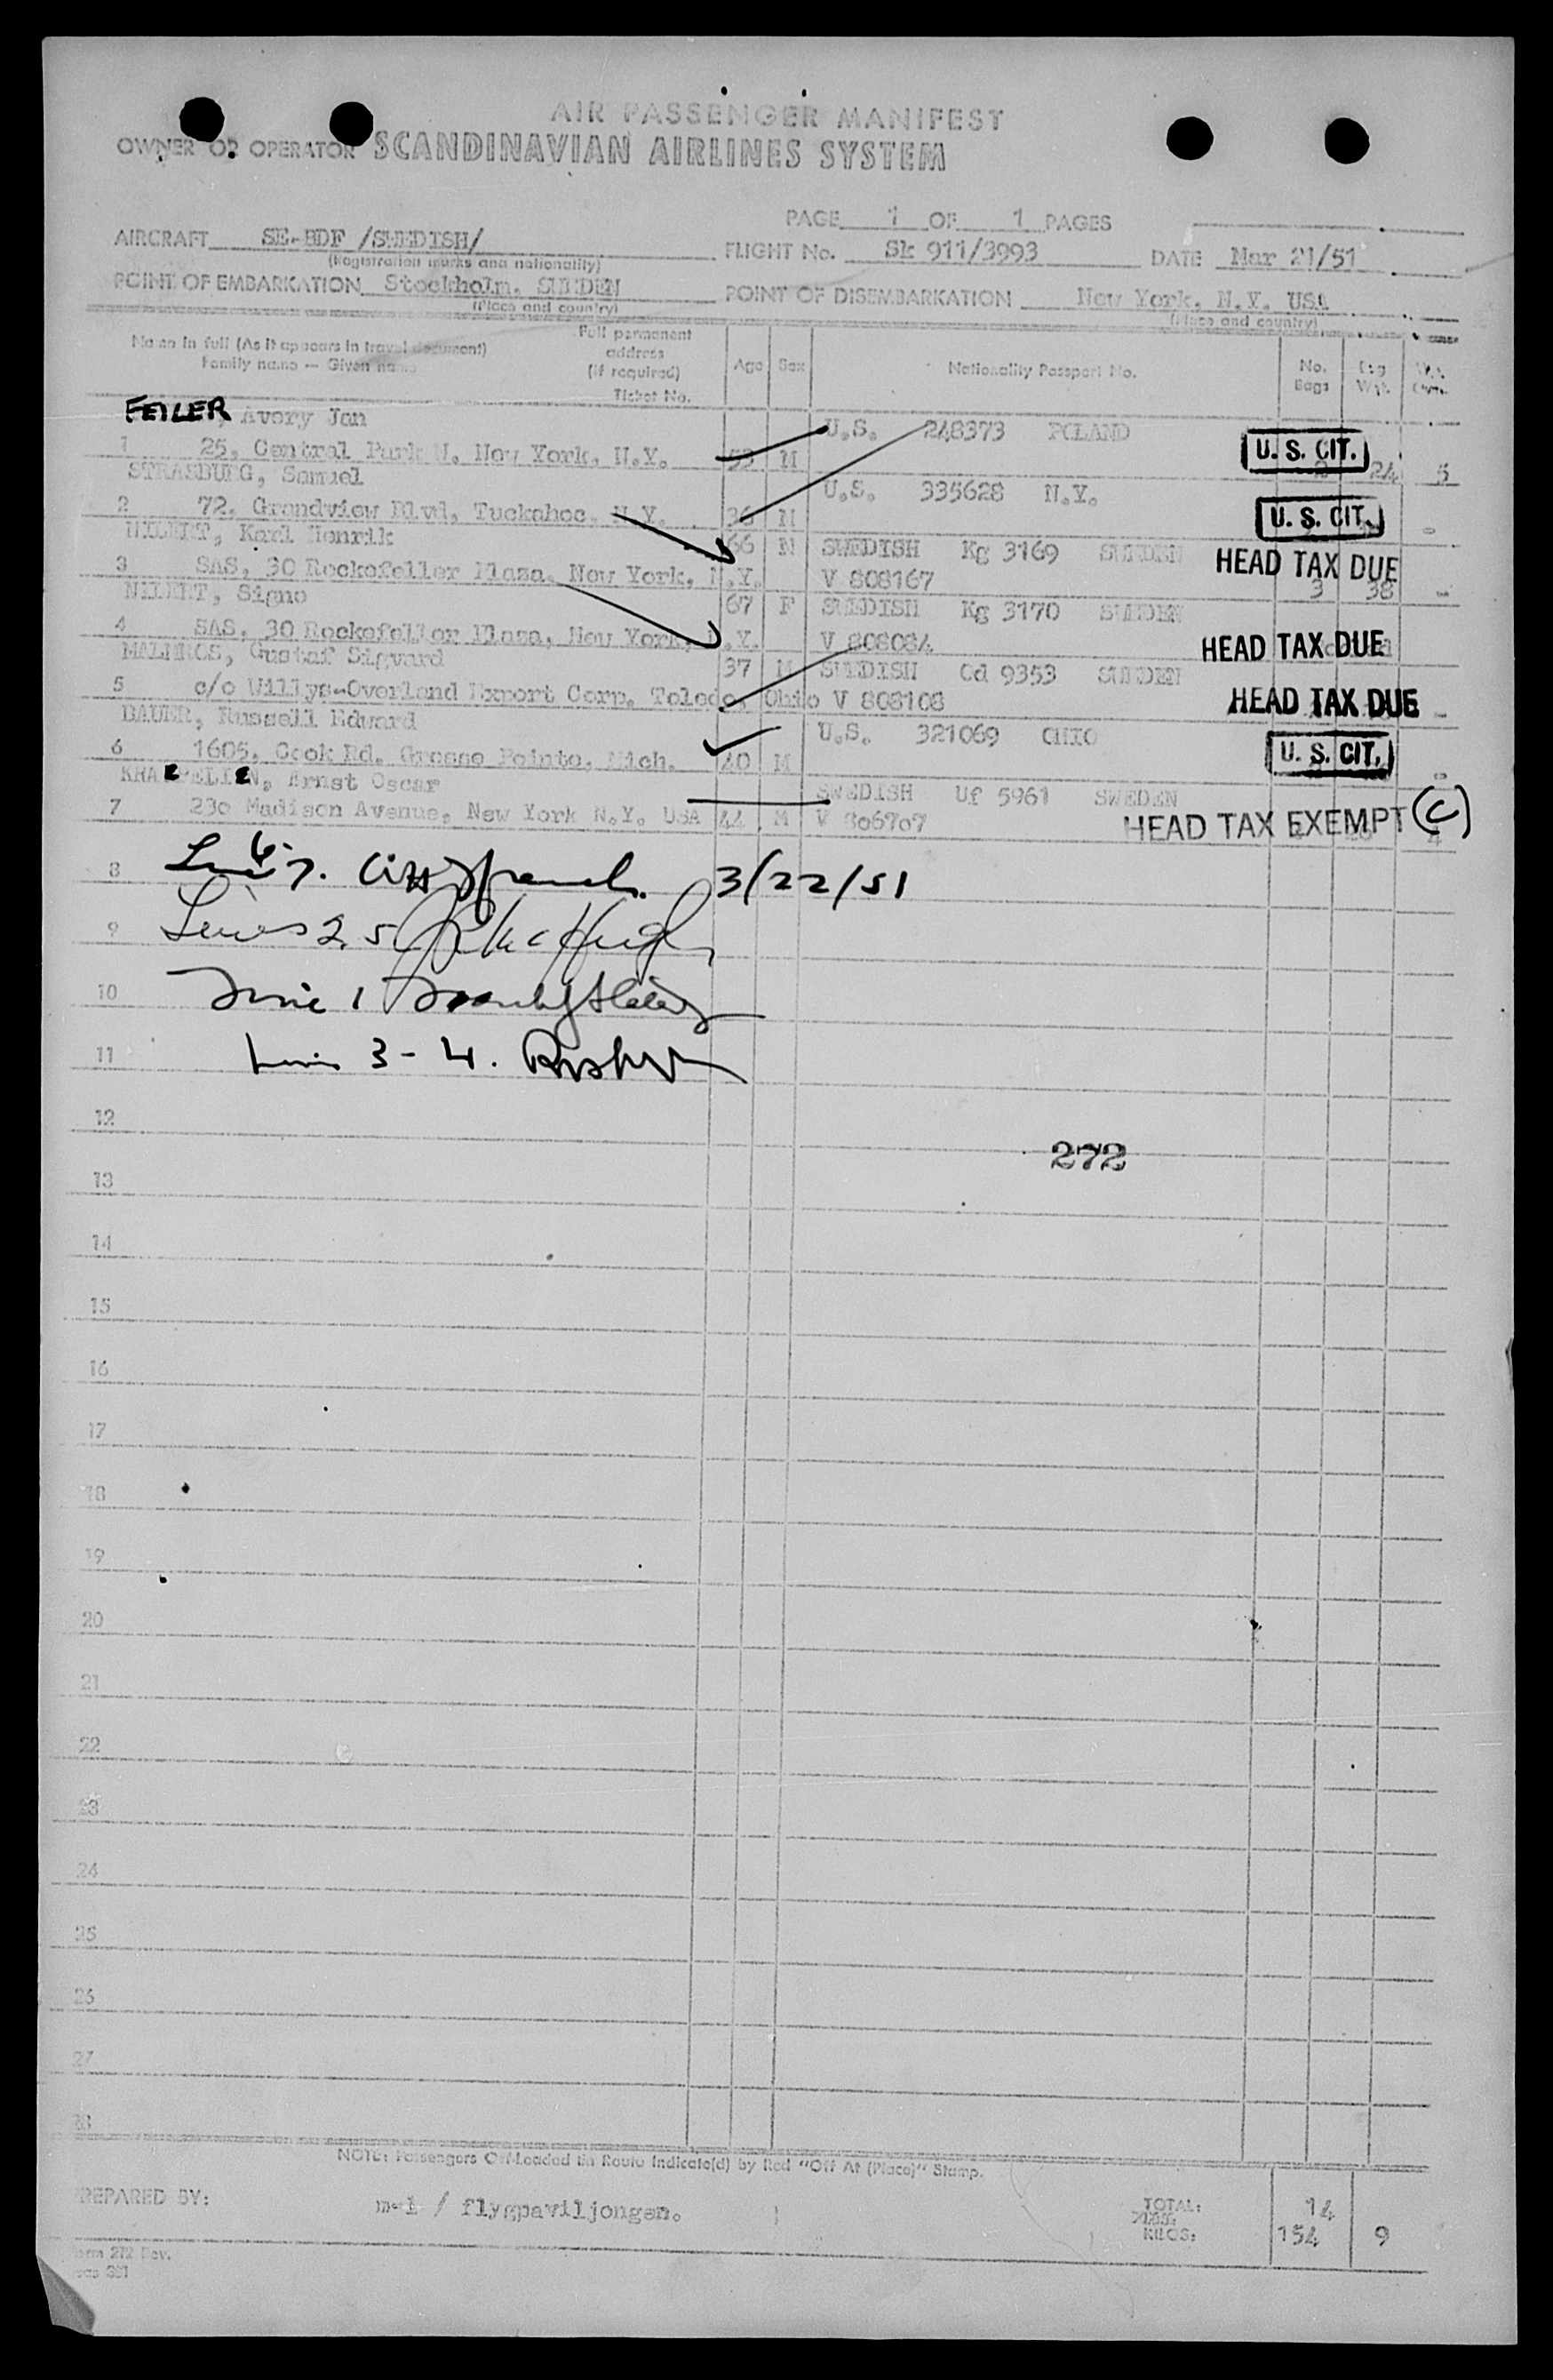 AIR PASSENGER MANIFEST
OWNER OR OPERATOR SCANDINAVIAN AIRLINES SYSTEM
PAGE 1 OF 1 PAGES
AIRCRAFT SE-BDF /SWEDISH/ FLIGHT No. Sk 911/3993 DATE Mar 21/51
(Registration marks and nationality)
POINT OF EMBARKATION Stockholm, SWEDEN POINT OF DISEMBARKATION New York, N.Y. USA
(Place and country) (Place and country)
Name in full (As it appears in travel document)
Family name — Given name
Full permanent
address
(if required)
Ticket No.
Age Sex Nationality Passport No. No. Bags Bag Wgt.
FEILER, Avory Jan U.S. 248373 POLAND
1 25, Central Park W. New York, N.Y. 53 M U.S. CIT. 24 5
STRASBURG, Samuel U.S. 335628 N.Y.
2 72, Grandview Blvd, Tuckahoe, N.Y. 36 M U.S. CIT.
Karl Henrik 66 M SWEDISH Kg 3169 SWEDEN HEAD TAX DUE
3 SAS, 30 Rockefeller Plaza, New York, N.Y. V 808167 3 38
Signe 67 F SWEDISH Kg 3170 SWEDEN
4 SAS, 30 Rockefeller Plaza, New York, N.Y. V 808084 HEAD TAX DUE
MALMROS, Gustaf Sigvard 37 M SWEDISH Cd 9353 SWEDEN
5 c/o Willys-Overland Export Corp. Toledo, Ohio V 808108 HEAD TAX DUE
BAUER, Russell Edward U.S. 321069 OHIO
6 1605, Cook Rd. Grosse Pointe, Mich. 40 M U.S. CIT.
Ernst Oscar SWEDISH Uf 5961 SWEDEN
7 230 Madison Avenue, New York N.Y. USA 44 M V 806707 HEAD TAX EXEMPT (C) 4
8 3/22/51
9 Lines 2, 5
10 Line 1
11 3-4.
12
272
13
14
15
16
17
18
19
20
21
22
23
24
25
26
27
28
NOTE: Passengers Offloaded En Route Indicate(d) by Red "Off At (Place)" Stamp.
PREPARED BY: m-l / flygpaviljongen. TOTAL: 14
KILOS: 154 9
Form 272 Rev.